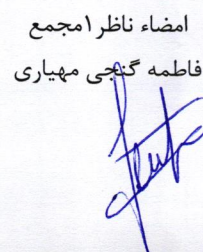 امضاء ناظر۱مجمع
فاطمه گنجی مهیاری